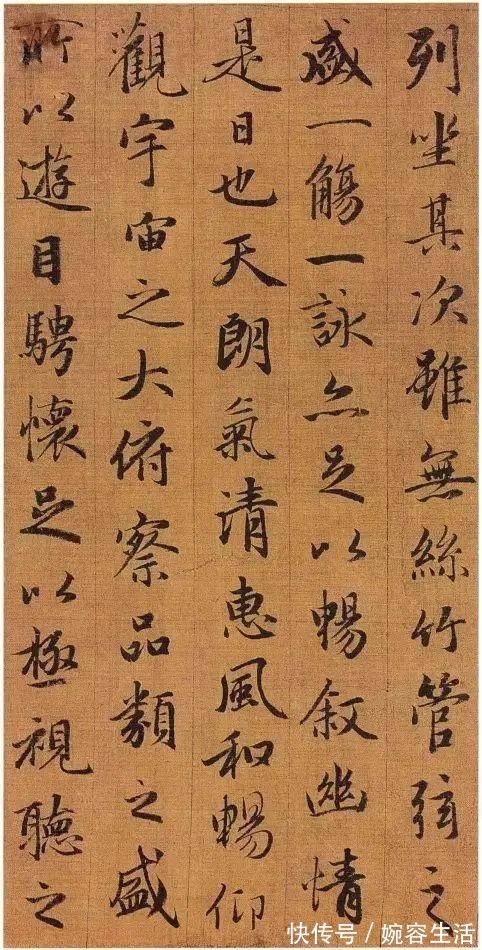 列坐其次雖無絲竹管弦之
盛一觴一詠亦足以暢叙幽情
是日也天朗氣清惠風和暢仰
觀宇宙之大俯察品類之盛
所以遊目騁懷足以極視聽之
快传号／婉容生活